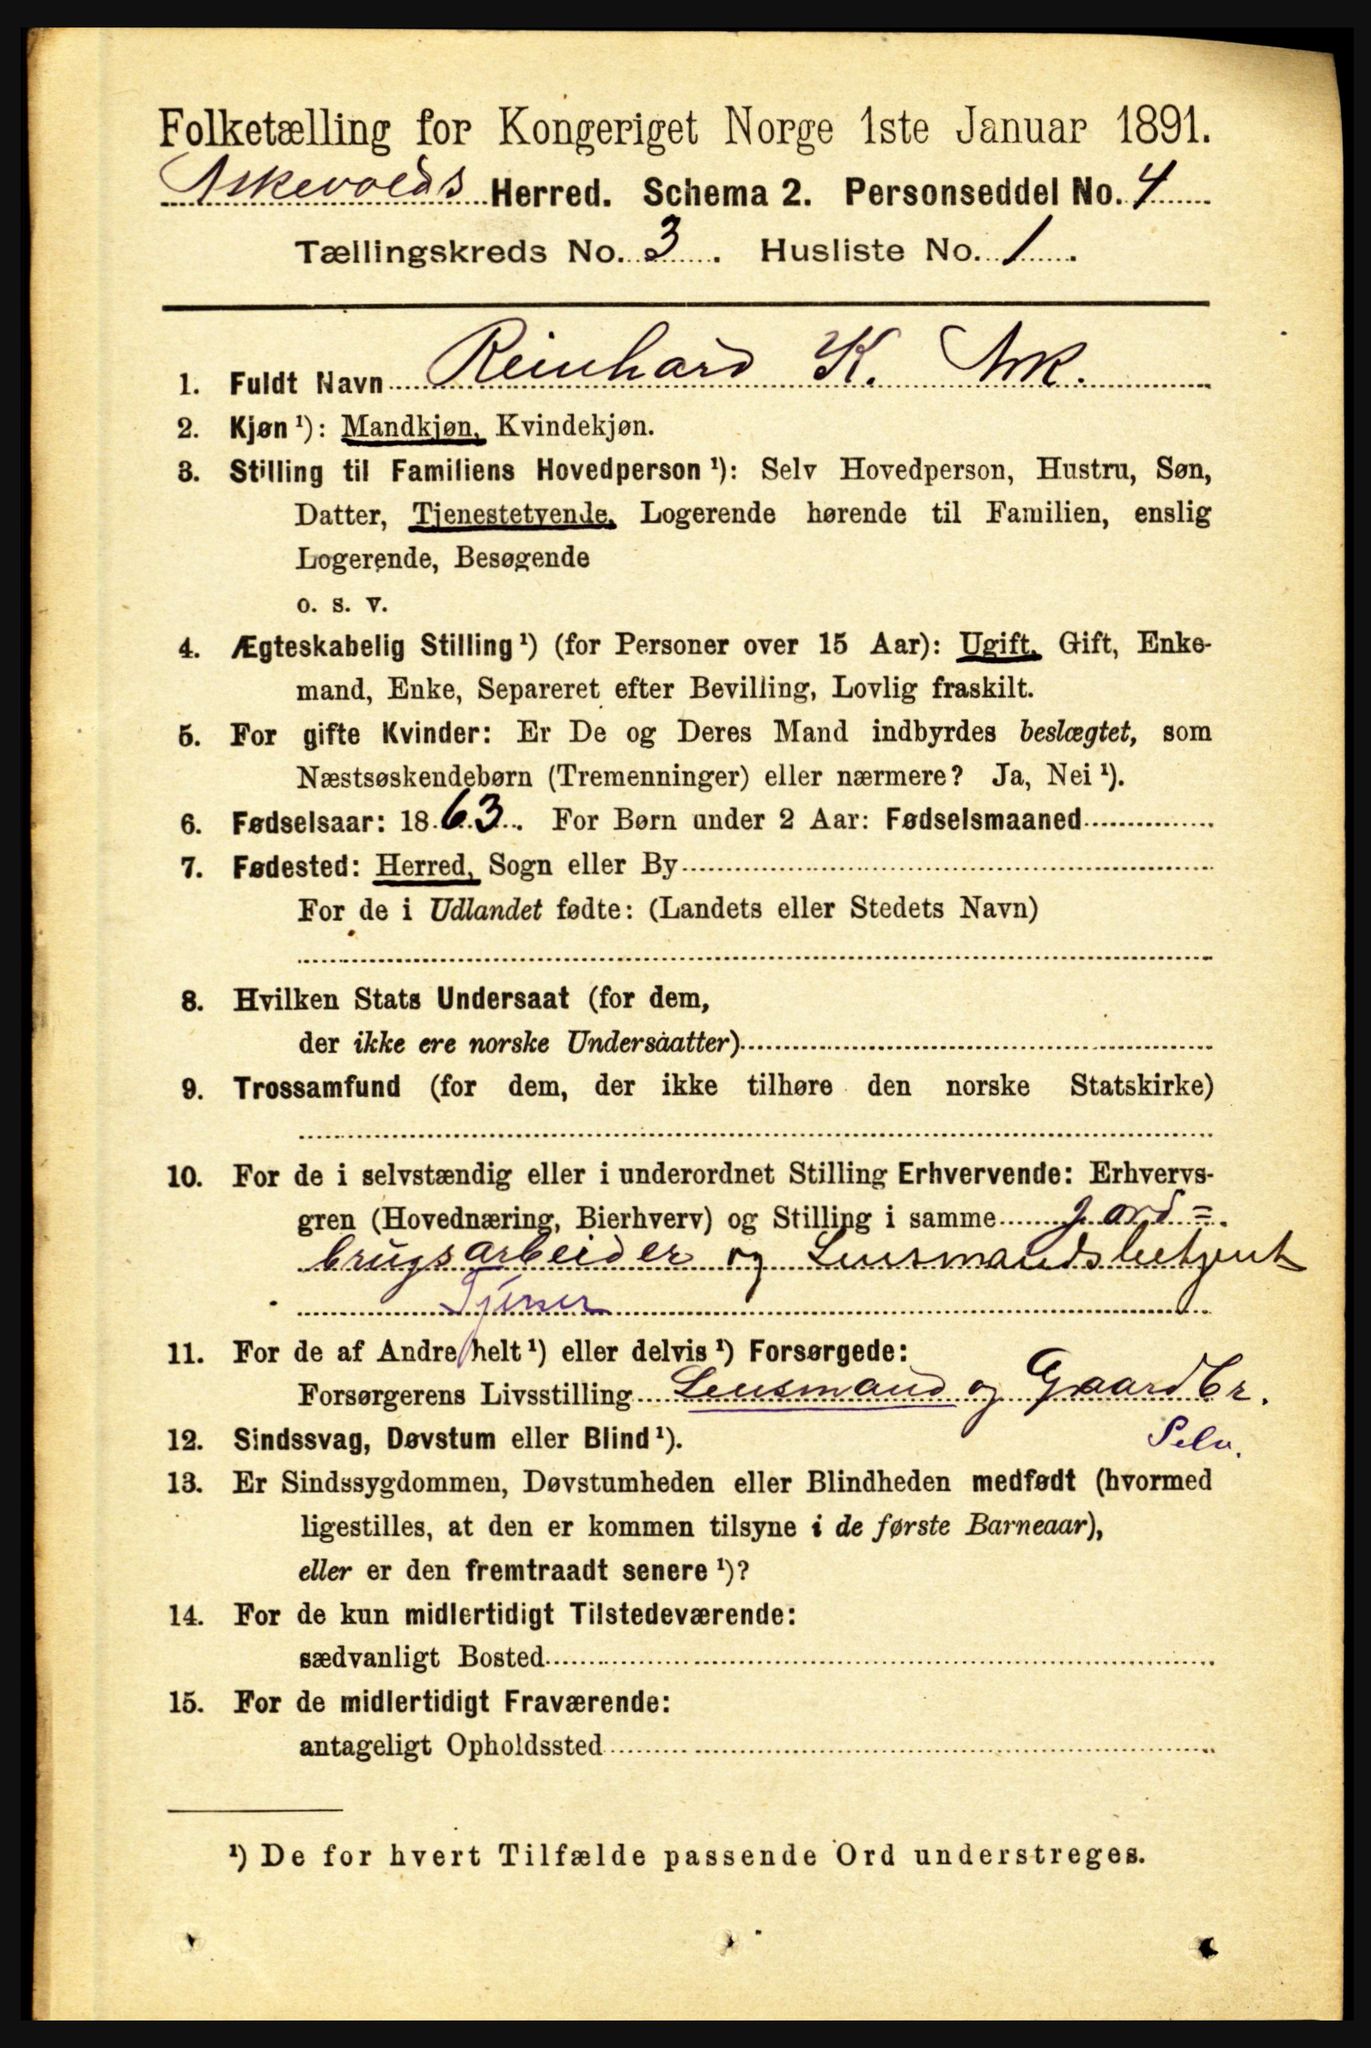 Folketælling for Kongeriget Norge 1ste Januar 1891.
Askevolds Herred. Schema 2. Personseddel No. 4
Tællingskreds No. 3. Husliste No. 1.
1. Fuldt Navn Reinhard K. Ask.
2. Kjøn ¹): Mandkjøn, Kvindekjøn.
3. Stilling til Familiens Hovedperson ¹): Selv Hovedperson, Hustru, Søn,
Datter, Tjenestetyende, Logerende hørende til Familien, enslig
Logerende, Besøgende
o. s. v.
4. Ægteskabelig Stilling ¹) (for Personer over 15 Aar): Ugift, Gift, Enke-
mand, Enke, Separeret efter Bevilling, Lovlig fraskilt.
5. For gifte Kvinder: Er De og Deres Mand indbyrdes beslægtet, som
Næstsøskendebørn (Tremenninger) eller nærmere? Ja, Nei ¹).
6. Fødselsaar: 1863. For Børn under 2 Aar: Fødselsmaaned
7. Fødested: Herred, Sogn eller By
For de i Udlandet fødte: (Landets eller Stedets Navn)
8. Hvilken Stats Undersaat (for dem,
der ikke ere norske Undersaatter)
9. Trossamfund (for dem, der ikke tilhøre den norske Statskirke)
10. For de i selvstændig eller i underordnet Stilling Erhvervende: Erhvervs-
gren (Hovednæring, Bierhverv) og Stilling i samme Jord=
brugsarbeider og Lensmandsbetjent
Tjener
11. For de af Andre helt ¹) eller delvis ¹) Forsørgede:
Forsørgerens Livsstilling Lensmand og Gaardbr.
12. Sindssvag, Døvstum eller Blind ¹). Selv.
13. Er Sindssygdommen, Døvstumheden eller Blindheden medfødt (hvormed
ligestilles, at den er kommen tilsyne i de første Barneaar),
eller er den fremtraadt senere ¹)?
14. For de kun midlertidigt Tilstedeværende:
sædvanligt Bosted
15. For de midlertidigt Fraværende:
antageligt Opholdssted
¹) De for hvert Tilfælde passende Ord understreges.